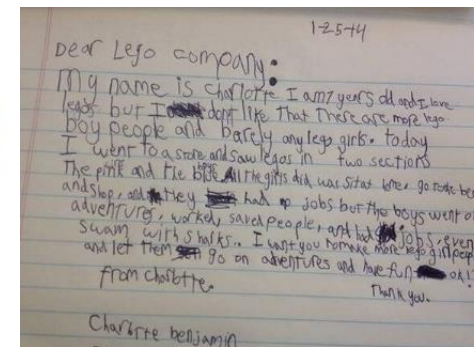 1-25-14
Dear Lego company:
My name is charlotte I am 7 years old and I love
legos but I don't like That There are more lego
boy people and barely any lego girls. today
I went to a store and saw legos in two sections
The pink and the blue. All the girls did was sit at home, go to the beach
and shop, and they had no jobs but the boys went on
adventures, worked, saved people, and had jobs, even
swam with sharks. I want you to make more lego girl people
and let them go on adventures and have fun ok!
Thank you.
from charlotte.
Charlotte benjamin